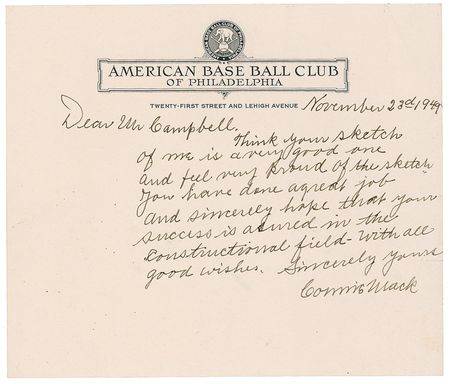 AMERICAN BASE BALL CLUB
OF PHILADELPHIA
TWENTY-FIRST STREET AND LEHIGH AVENUE
November 23rd, 1949
Dear Mr Campbell.
Think your sketch
of me is a very good one
and feel very proud of the sketch
You have done a great job
and sincerely hope that your
success is asured in the
constructional field - With all
good wishes. Sincerely yours
Connie Mack